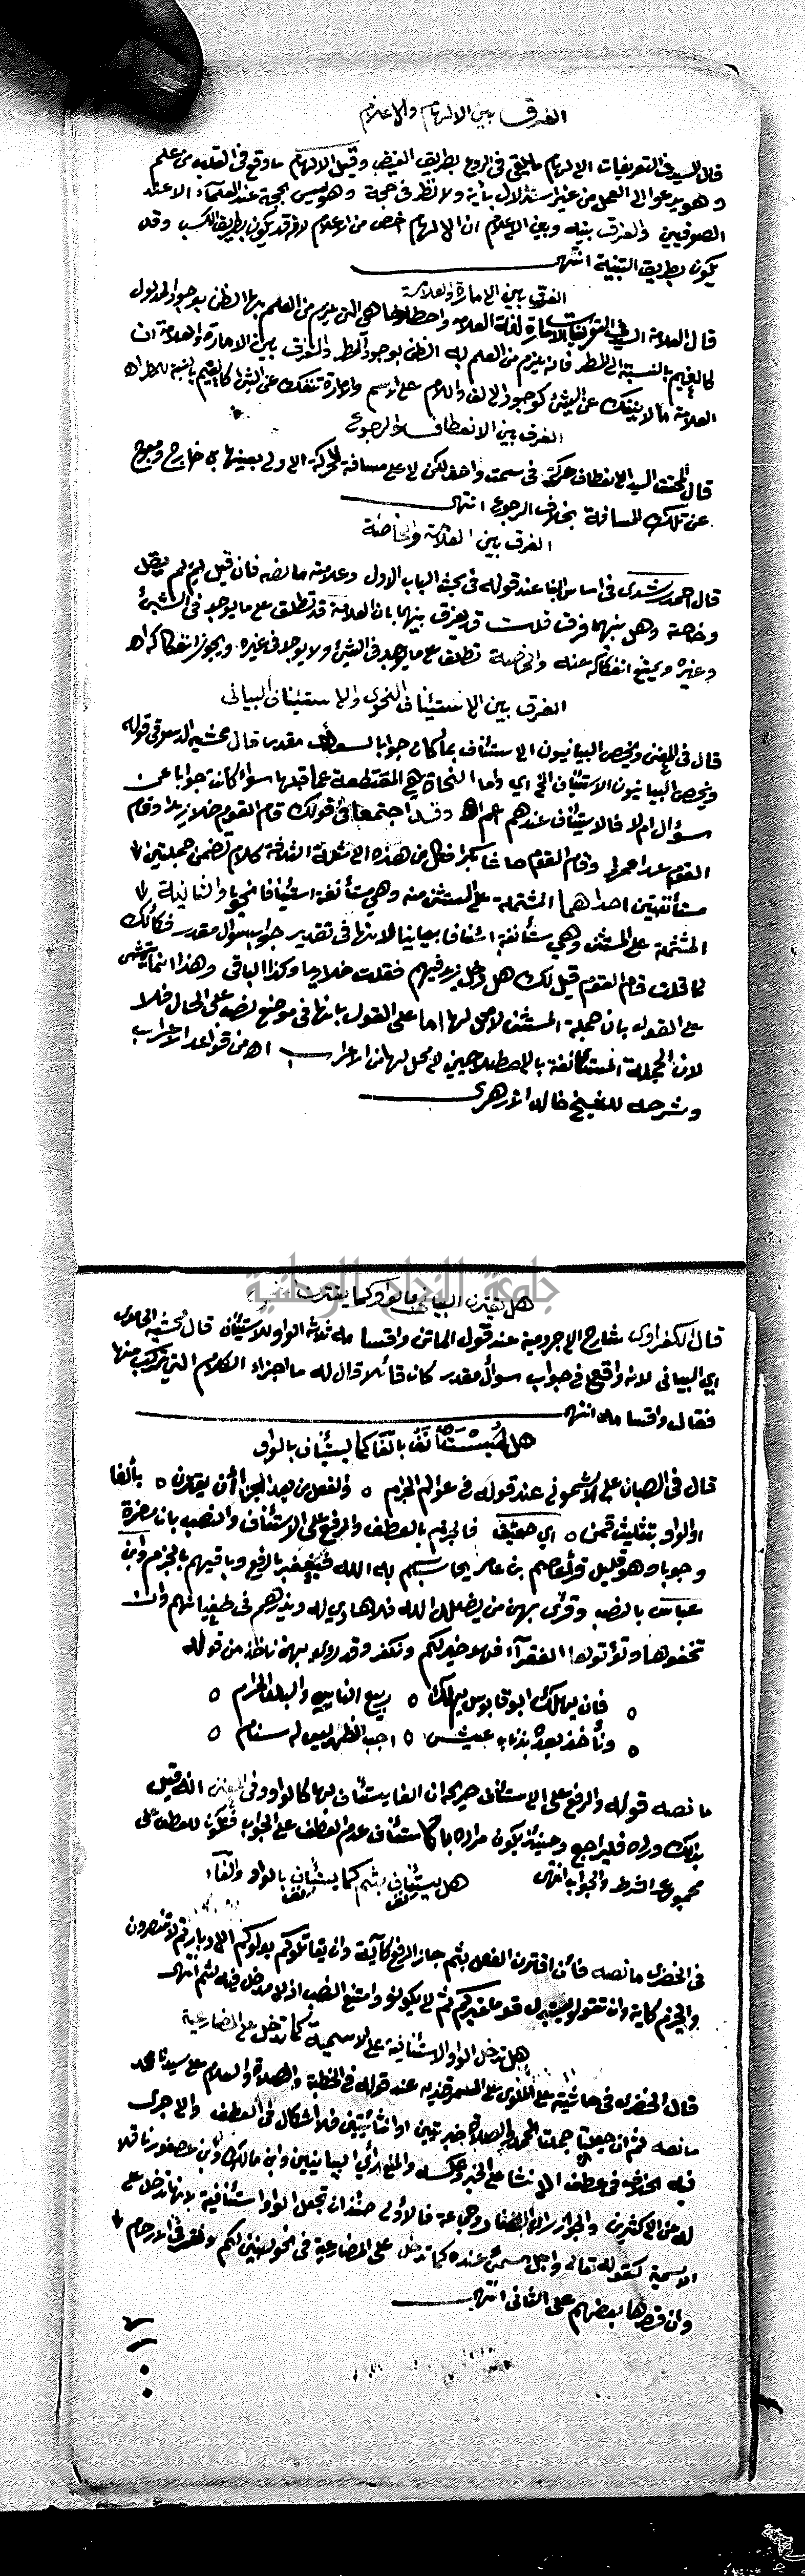 الفرق بين الالهام والاعلام
قال السيد في التعريفات الالهام ما يلقى في الروع بطريق الفيض وقيل الالهام ما وقع في القلب من علم
وهو يدعو الى العمل من غير استدلال بآية ولا نظر في حجة وهو ليس بحجة عند العلمآء الا عند
الصوفيين والفرق بينه وبين الاعلام ان الالهام اخص من الاعلام لانه قد يكون بطريق الكسب وقد
يكون بطريق التنبيه انتهى
الفرق بين الامارة والعلامة
قال العلامة السيد في التعريفات الامارة لغة العلامة واصطلاحا هي التي يلزم من العلم بها الظن بوجود المدلول
كالغيم بالنسبة الى المطر فانه يلزم من العلم به الظن بوجود المطر والفرق بين الامارة والعلامة ان
العلامة ما لا ينفك عن الشئ كوجود الالف واللام على الاسم والامارة تنفك عن الشئ كالغيم بالنسبة للمطر اه
الفرق بين الانعطاف والرجوع
قال المحقق السيد الانعطاف حركة في سمت واحد لكن لا على مسافة الحركة الاولى بعينها بل خارج ومعوج
عن تلك المسافة بخلاف الرجوع انتهى
الفرق بين العلامة والخاصة
قال احمد رشدي في اساس البنا عند قوله في بحث الباب الاول وعلامته ما نصه فان قيل لم لم يقل
وخاصته وهل بينهما فرق قلت قد يفرق بينهما بان العلامة قد تطلق على ما يوجد في الشيئ
وغيره ويمتنع انفكاكه عنه والخاصة تطلق على ما يوجد في الشئ ولا يوجد في غيره ويجوز انفكاكه اه
الفرق بين الاستئناف النحوي والاستئناف البياني
قال في المغني ويخص البيانيون الاستئناف بما كان جوابا لسؤال مقدر قال محشيه الدسوقي قوله
ويخص البيانيون الاستئناف الخ اي واما النحاة هي المقطعة عما قبلها سواء كانت جوابا عن
سؤال ام لا فالاستئناف عندهم اعم اه وقد اجتمعا في قولك قام القوم خلا زيدا وقام
القوم عدا عمرا وقام القوم حاشا بكرا فكل من هذه الامثلة الثلاثة كلام تضمن جملتين
مستأنفتين احداهما المشتملة على المستثنى منه وهي مستأنفة استئنافا نحويا والثانية
المشتملة على المستثنى وهي مستأنفة استئنافا بيانيا لانها في تقدير جواب سؤال مقدر فكانك
لما قلت قام القوم قيل لك هل دخل زيد فيهم فقلت خلا زيدا وكذا الباقي وهذا انما يتمشى
على القول بان جملة المستثنى لا محل لها اما على القول بانها في موضع نصب على الحال فلا
لان الجملة المستأنفة بالاصطلاحين لا محل لها من الاعراب اه من قواعد الاعراب
وشرحه للشيخ خالد الازهري
جامعة النجاح الوطنية
هل يقترن البياني بالواو كما يقترن النحوي
قال الكفراوي شارح الاجرومية عند قول الماتن واقسامه ثلاثة الواو للاستئناف قال محشيه الحامدي
اي البياني لانه واقع في جواب سؤال مقدر كان قائلا قال له ما اجزاء الكلام التي يتركب منها
فقال واقسامه انتهى
هل يستأنف بالفا كما يستأنف بالواو
قال في الصبان على الاشموني عند قوله في عوامل الجزم ٥ والفعل من بعد الجزا أن يقترن ٥ بالفا
او الواو بتثليث قمن ٥ اي حقيق فالجزم بالعطف والرفع على الاستئناف والنصب بان مضمرة
وجوبا وهو قليل قرأ عاصم بن عامر يحاسبكم به الله فيغفر بالرفع وباقيهم بالجزم وابن
عباس بالنصب وقرئ بهن من يضلل الله فلا هادي له ويذرهم في طغيانهم وان
تخفوها وتؤتوها الفقرآء فهو خير لكم ونكفر وقد روي بهن نأخذ من قوله
٥ فان يهلك ابو قابوس يهلك ٥ ربيع الناس والبلد الحرام ٥
٥ ونأخذ بعده بذناب عيش ٥ اجب الظهر ليس له سنام ٥
ما نصه قوله والرفع على الاستئناف صريح ان الفا يستأنف بها كالواو وفي المغني انه قيل
بذلك ورده فليراجع وحينئذ يكون مراده بالاستئناف عدم العطف على الجواب فيكون للعطف على
مجموع الشرط والجواب انتهى
هل يستأنف بثم كما يستأنف بالواو والفآء
في الخضري ما نصه فان اقترن الفعل بثم جاز الرفع كآية وان يقاتلوكم يولوكم الادبار ثم لا تنصرون
والجزم كاية وان تتولوا يستبدل قوما غيركم ثم لا يكونوا وامتنع النصب اذ لا مدخل فيه لثم انتهى
هل تدخل الواو الاستئنافية على الاسمية كما تدخل على المضارعية
قال الخضري في حاشيته على الملوي على السمرقندية عند قوله في الخطبة والصلاة والسلام على سيدنا محمد
ما نصه ثم ان جعلتا جملتا الحمد والصلاة خبريتين او انشائيتين فلا اشكال في العطف والا جرى
فيه الخلاف في عطف الانشا على الخبر وعكسه والمنع رأي البيانيين وابن مالك وابن عصفور ناقلا
له عن الاكثرين والجواز رأي الصفار وجماعة فالاولى حينئذ ان تجعل الواو استئنافية لانها تدخل على
الاسمية كقوله تعالى واجل مسمى عنده كما تدخل على المضارعية في نحو لنبين لكم ونقر في الارحام
وان قصرها بعضهم على الثاني انتهى